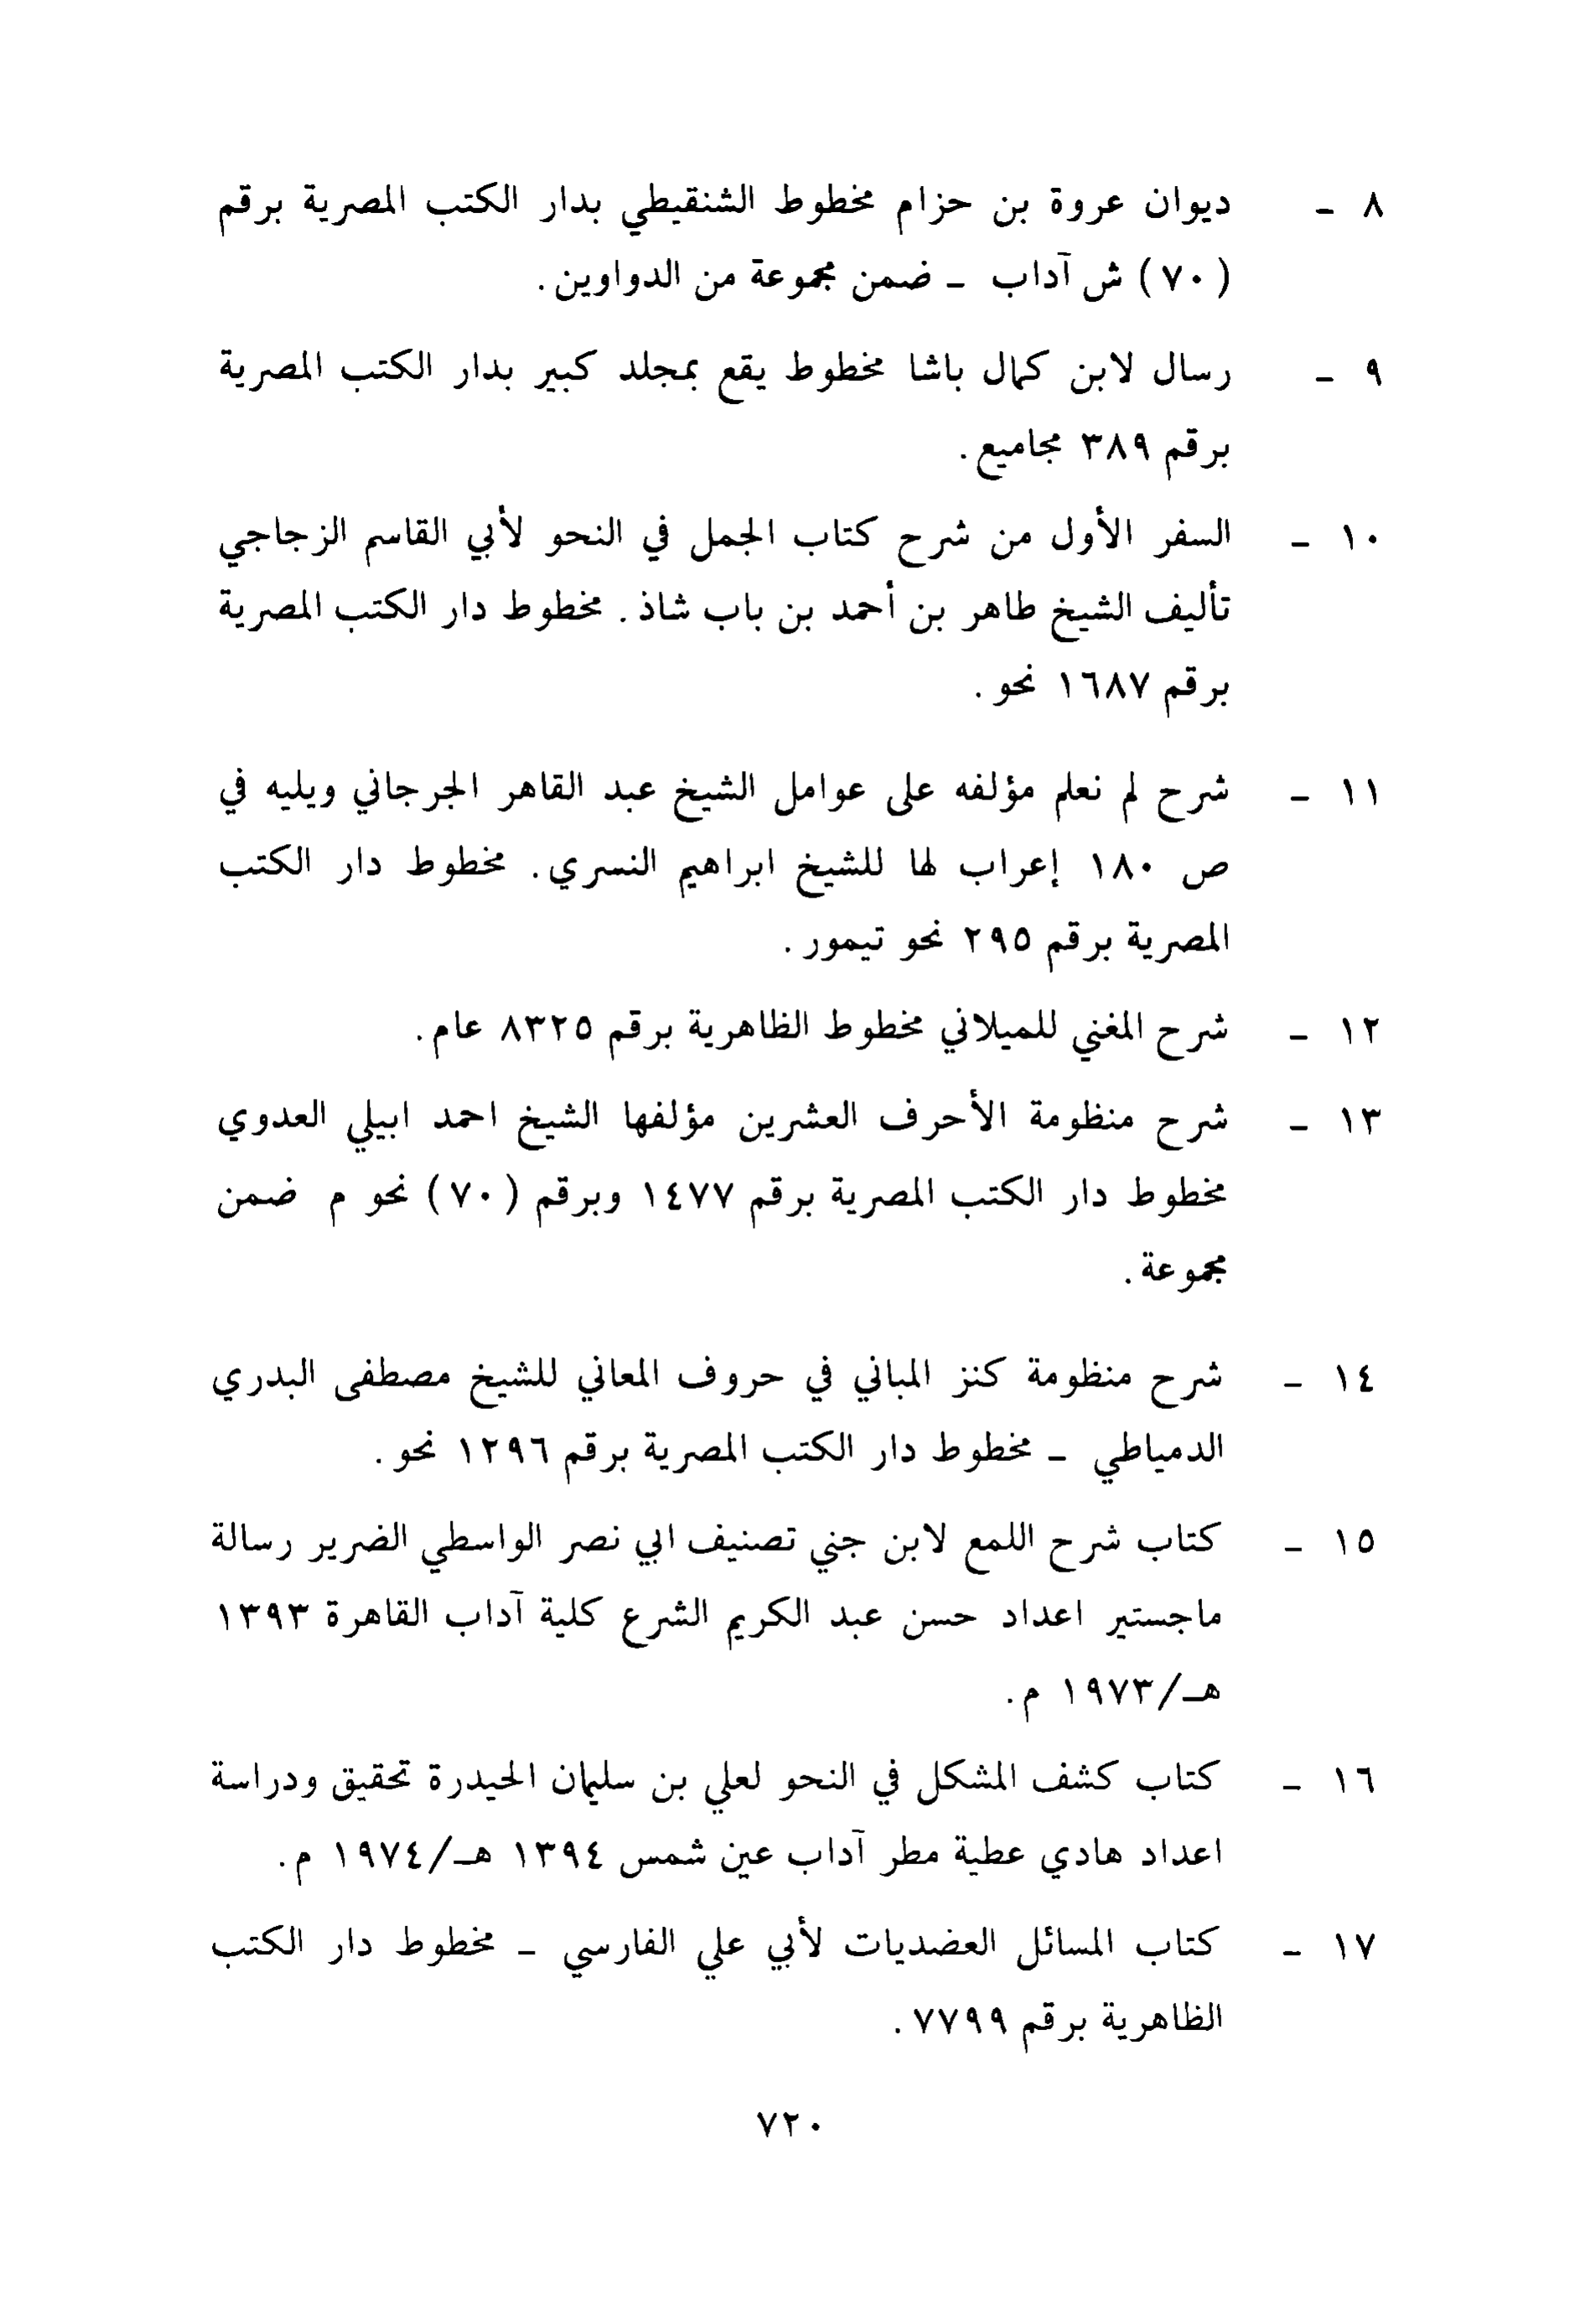 ٨ - ديوان عروة بن حزام مخطوط الشنقيطي بدار الكتب المصرية برقم
(٧٠) ش آداب - ضمن مجموعة من الدواوين.
٩ - رسال لابن كمال باشا مخطوط يقع بمجلد كبير بدار الكتب المصرية
برقم ٣٨٩ مجاميع.
١٠ - السفر الأول من شرح كتاب الجمل في النحو لأبي القاسم الزجاجي
تأليف الشيخ طاهر بن أحمد بن باب شاذ. مخطوط دار الكتب المصرية
برقم ١٦٨٧ نحو.
١١ - شرح لم نعلم مؤلفه على عوامل الشيخ عبد القاهر الجرجاني ويليه في
ص ١٨٠ إعراب لها للشيخ ابراهيم النسري. مخطوط دار الكتب
المصرية برقم ٢٩٥ نحو تيمور.
١٢ - شرح المغني للميلاني مخطوط الظاهرية برقم ٨٣٢٥ عام.
١٣ - شرح منظومة الأحرف العشرين مؤلفها الشيخ احمد ابيلي العدوي
مخطوط دار الكتب المصرية برقم ١٤٧٧ وبرقم (٧٠) نحو م ضمن
مجموعة.
١٤ - شرح منظومة كنز المباني في حروف المعاني للشيخ مصطفى البدري
الدمياطي - مخطوط دار الكتب المصرية برقم ١٢٩٦ نحو.
١٥ - كتاب شرح اللمع لابن جني تصنيف ابي نصر الواسطي الضرير رسالة
ماجستير اعداد حسن عبد الكريم الشرع كلية آداب القاهرة ١٣٩٣
هـ/١٩٧٣ م.
١٦ - كتاب كشف المشكل في النحو لعلي بن سليمان الحيدرة تحقيق ودراسة
اعداد هادي عطية مطر آداب عين شمس ١٣٩٤ هـ/١٩٧٤ م.
١٧ - كتاب المسائل العضديات لأبي علي الفارسي - مخطوط دار الكتب
الظاهرية برقم ٧٧٩٩.
٧٢٠